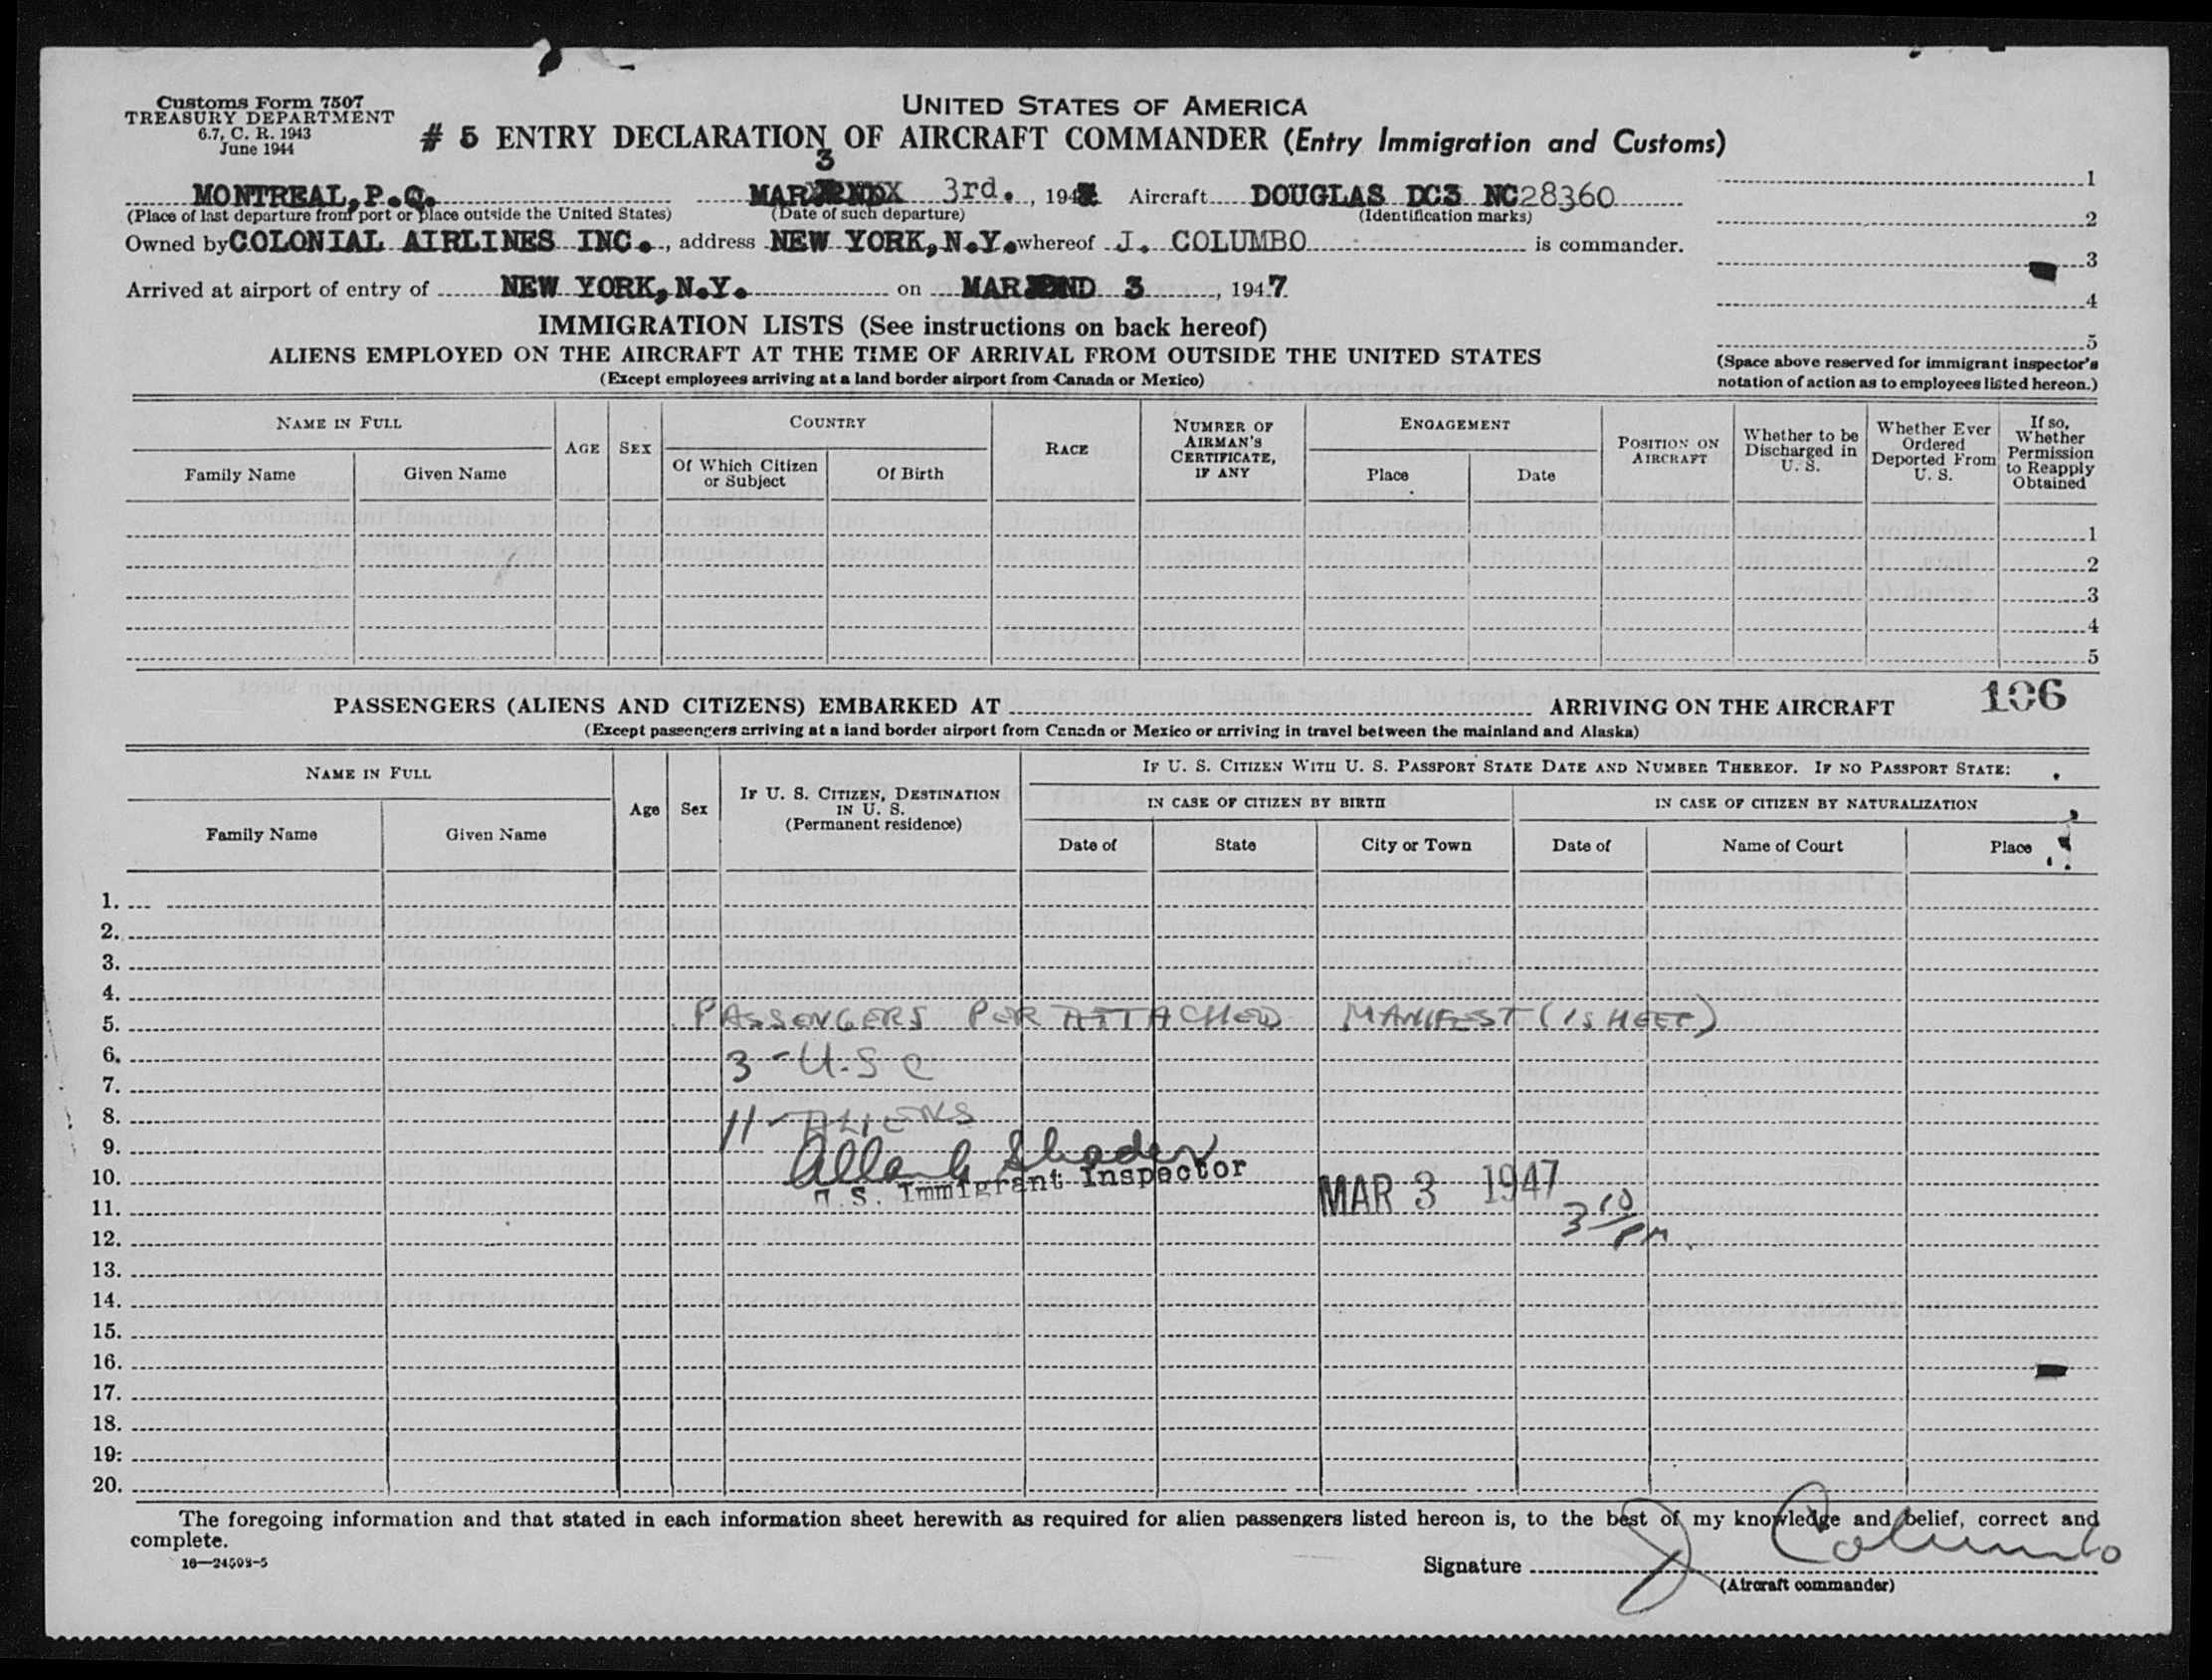 Customs Form 7507
TREASURY DEPARTMENT
6.7, C. R. 1943
June 1944
UNITED STATES OF AMERICA
# 5 ENTRY DECLARATION OF AIRCRAFT COMMANDER (Entry Immigration and Customs)
3
MONTREAL, P.Q. MAR 2ND 3rd., 194 Aircraft DOUGLAS DC3 NC28360
(Place of last departure from port or place outside the United States) (Date of such departure) (Identification marks)
Owned by COLONIAL AIRLINES INC., address NEW YORK, N.Y. whereof J. COLUMBO is commander.
Arrived at airport of entry of NEW YORK, N.Y. on MAR ND 3, 1947
1
2
3
4
5
(Space above reserved for immigrant inspector's
notation of action as to employees listed hereon.)
IMMIGRATION LISTS (See instructions on back hereof)
ALIENS EMPLOYED ON THE AIRCRAFT AT THE TIME OF ARRIVAL FROM OUTSIDE THE UNITED STATES
(Except employees arriving at a land border airport from Canada or Mexico)
NAME IN FULL
Family Name Given Name
AGE
SEX
COUNTRY
Of Which Citizen or Subject
Of Birth
RACE
NUMBER OF AIRMAN'S CERTIFICATE, IF ANY
ENGAGEMENT
Place Date
POSITION ON AIRCRAFT
Whether to be Discharged in U. S.
Whether Ever Ordered Deported From U. S.
If so, Whether Permission to Reapply Obtained
1
2
3
4
5
PASSENGERS (ALIENS AND CITIZENS) EMBARKED AT ARRIVING ON THE AIRCRAFT 106
(Except passengers arriving at a land border airport from Canada or Mexico or arriving in travel between the mainland and Alaska)
NAME IN FULL
Family Name Given Name
Age
Sex
IF U. S. CITIZEN, DESTINATION IN U. S. (Permanent residence)
IF U. S. CITIZEN WITH U. S. PASSPORT STATE DATE AND NUMBER THEREOF. IF NO PASSPORT STATE:
IN CASE OF CITIZEN BY BIRTH
Date of State City or Town
IN CASE OF CITIZEN BY NATURALIZATION
Date of Name of Court Place
1.
2.
3.
4.
5. PASSENGERS PER ATTACHED MANIFEST (1 SHEET)
6. 3 - U.S C
7.
8. 11 - ALIENS
9.
10. U.S. Immigrant Inspector MAR 3 1947
11. 3 10 PM
12.
13.
14.
15.
16.
17.
18.
19.
20.
The foregoing information and that stated in each information sheet herewith as required for alien passengers listed hereon is, to the best of my knowledge and belief, correct and
complete.
16—24593-5
Signature J Columbo
(Aircraft commander)